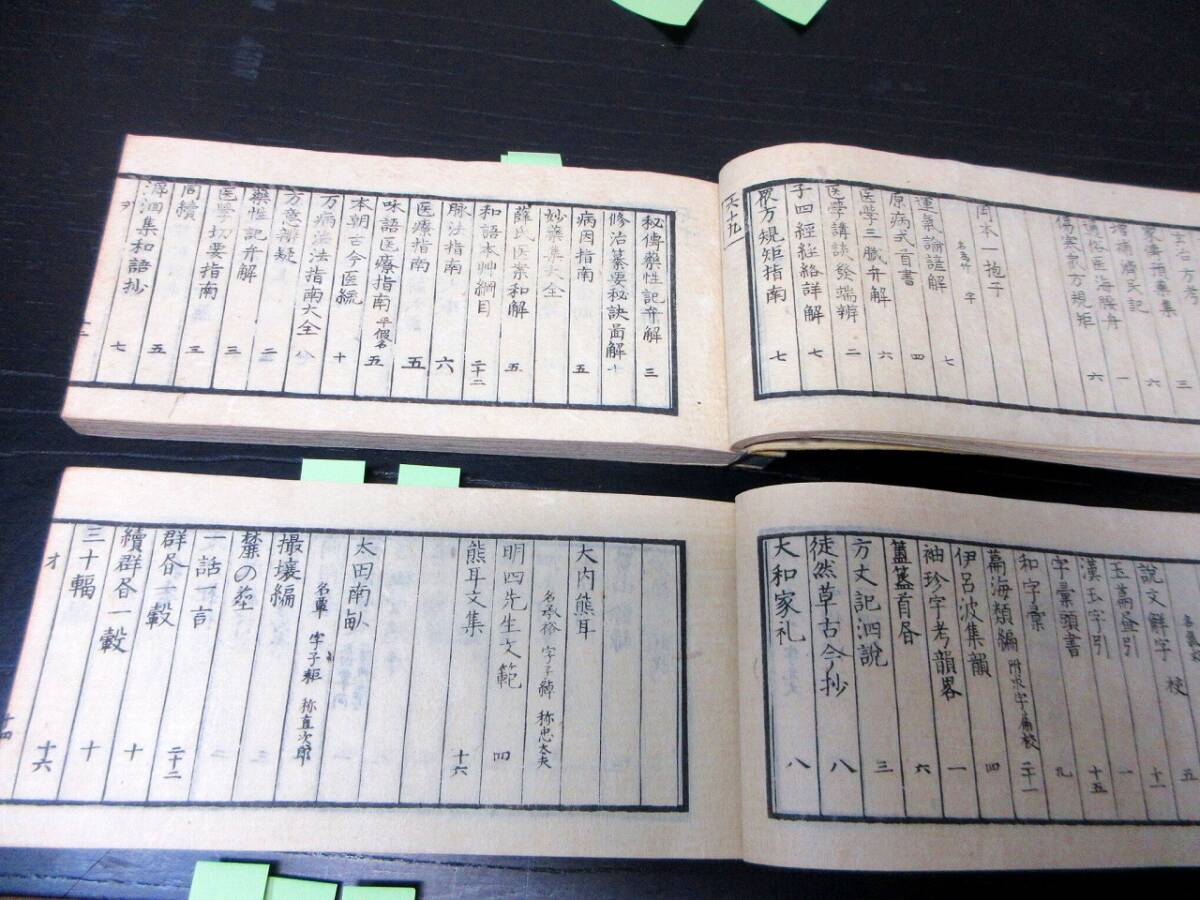 秘傳藥性記弁解 三
修治纂要秘訣啚解 十
病因指南 五
妙藥集大全
薛氏医案和解 五
和語本艸綱目 二十二
脉法指南 六
医療指南 五
味語医療指南 平假名 五
本朝古今医統 十
万病治法指南大全 八
方意辨疑 二
藥性記弁解 三
医学切要指南 三
同續 五
溯洄集和語抄 七
増補濟民記 一
通俗医海
傷寒衆方規矩 六
岡本一抱子
運氣論諺解 七
原病式首書 四
医学三臓弁解 六
医学講談發端辨 二
十四經經絡詳解 七
衆方規矩指南 七
大内熊耳
名承裕 字子綽 称忠太夫
明四先生文範 四
熊耳文集 十六
太田南畝
名覃 字子耜 称直次郎
撮壤編
麓の塵
一話一言
群書一轂 二十二
續群書一轂 十
三十輻 十
オ 十六
十四
説文解字 校 十二
玉篇 引 一
漢玉字引 十五
字彙頭書 九
和字彙 二十一
萹海類編 四
伊呂波集韻 一
袖珍字考韻畧 六
首書
方丈記泗説 三
徒然草古今抄 八
大和家礼 八